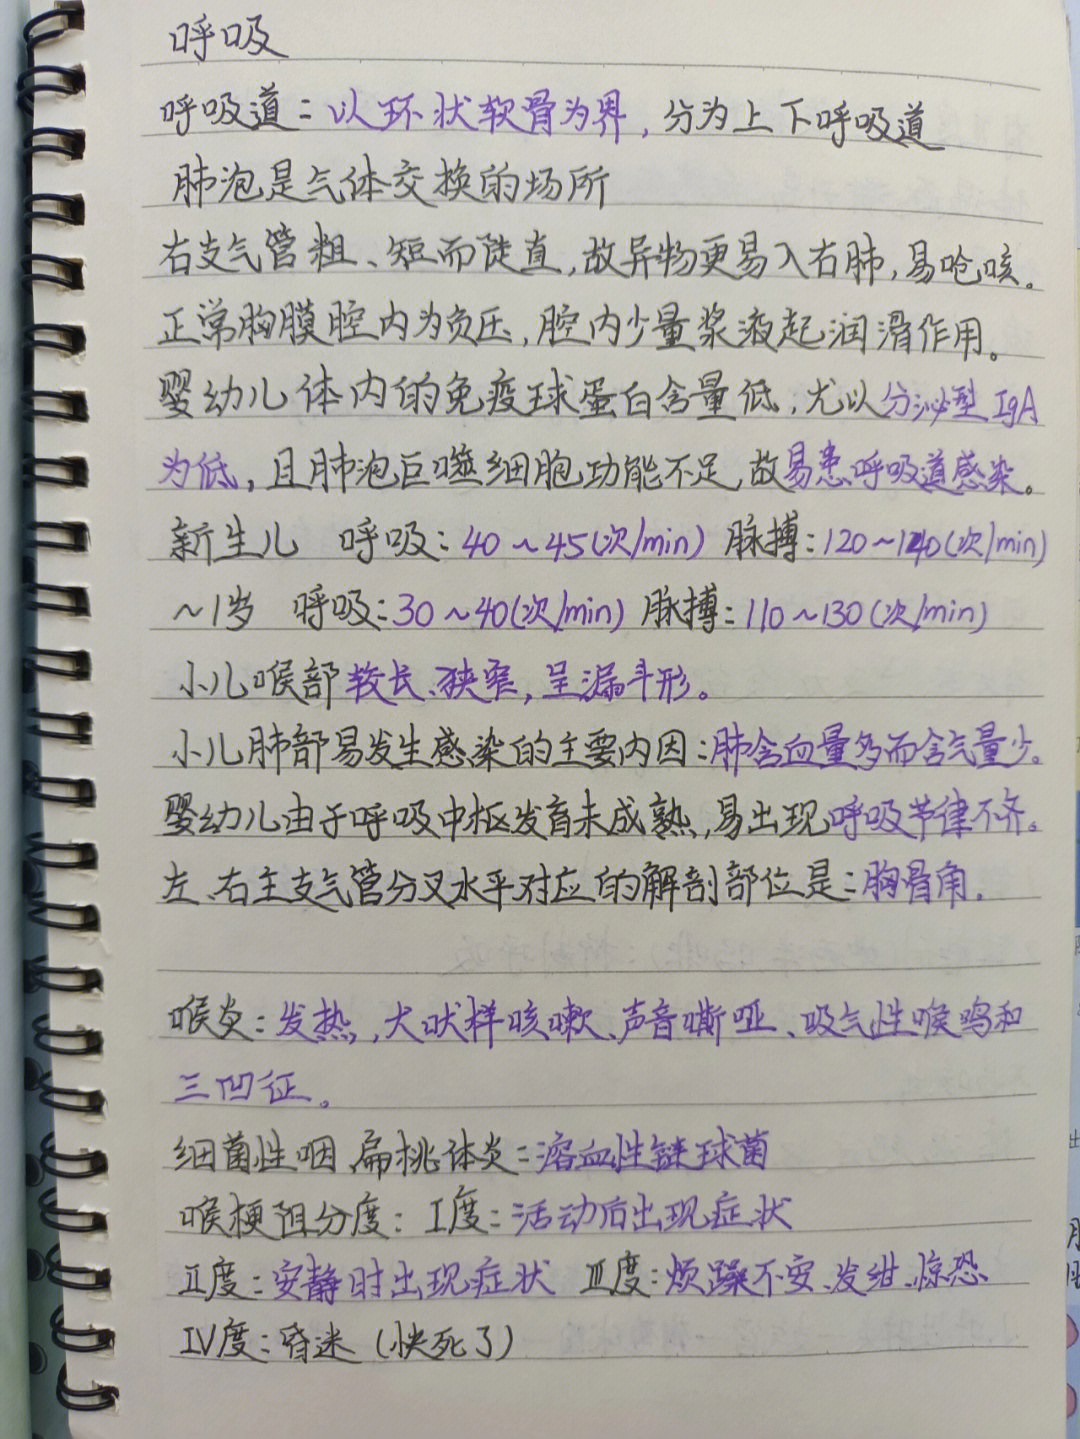 呼吸
呼吸道：以环状软骨为界，分为上下呼吸道
肺泡是气体交换的场所
右支气管粗、短而陡直，故异物更易入右肺，易呛咳。
正常胸膜腔内为负压，腔内少量浆液起润滑作用。
婴幼儿体内的免疫球蛋白含量低，尤以分泌型IgA
为低，且肺泡巨噬细胞功能不足，故易患呼吸道感染。
新生儿 呼吸：40～45(次/min) 脉搏：120～140(次/min)
～1岁 呼吸：30～40(次/min) 脉搏：110～130(次/min)
小儿喉部较长、狭窄，呈漏斗形。
小儿肺部易发生感染的主要内因：肺含血量多而含气量少。
婴幼儿由于呼吸中枢发育未成熟，易出现呼吸节律不齐。
左、右主支气管分叉水平对应的解剖部位是：胸骨角．
喉炎：发热，犬吠样咳嗽、声音嘶哑、吸气性喉鸣和
三凹征。
细菌性咽、扁桃体炎：溶血性链球菌
喉梗阻分度：Ⅰ度：活动后出现症状
Ⅱ度：安静时出现症状 Ⅲ度：烦躁不安、发绀、惊恐
Ⅳ度：昏迷（快死了）